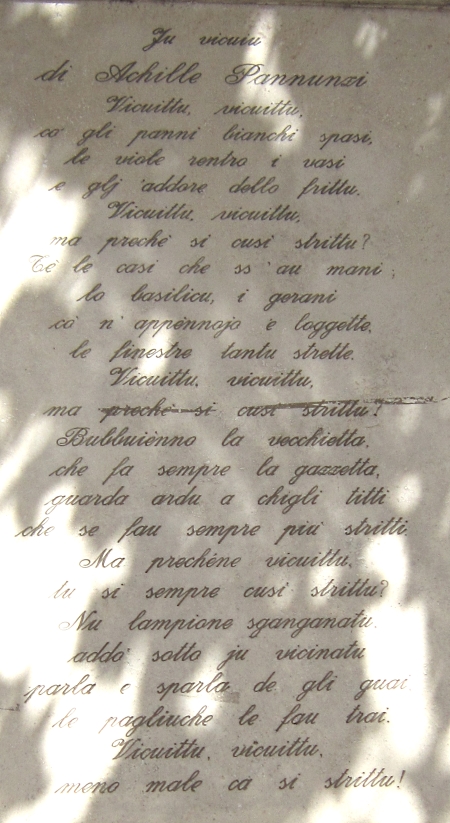 Ju vicuiu
di Achille Pannunzi
Vicuittu, vicuittu,
co' gli panni bianchi spasi,
le viole rentro i vasi
e glj 'addore dello frittu.
Vicuittu, vicuittu,
ma preché si cusi strittu?
Té le casi che ss'au mani;
lo basilicu, i gerani
cà n'appénnojo e loggette,
le finestre tantu strette.
Vicuittu, vicuittu,
ma preché si cusi strittu?
Bubbuiénno la vecchietta,
che fa sempre la gazzetta,
guarda ardu a chigli titti
che se fau sempre più stritti.
Ma prechéne vicuittu,
tu si sempre cusi strittu?
Nu lampione sganganatu
addo' sotto ju vicinatu
parla e sparla de gli guai
le pagliuche le fau trai.
Vicuittu, vicuittu,
meno male ca si strittu!